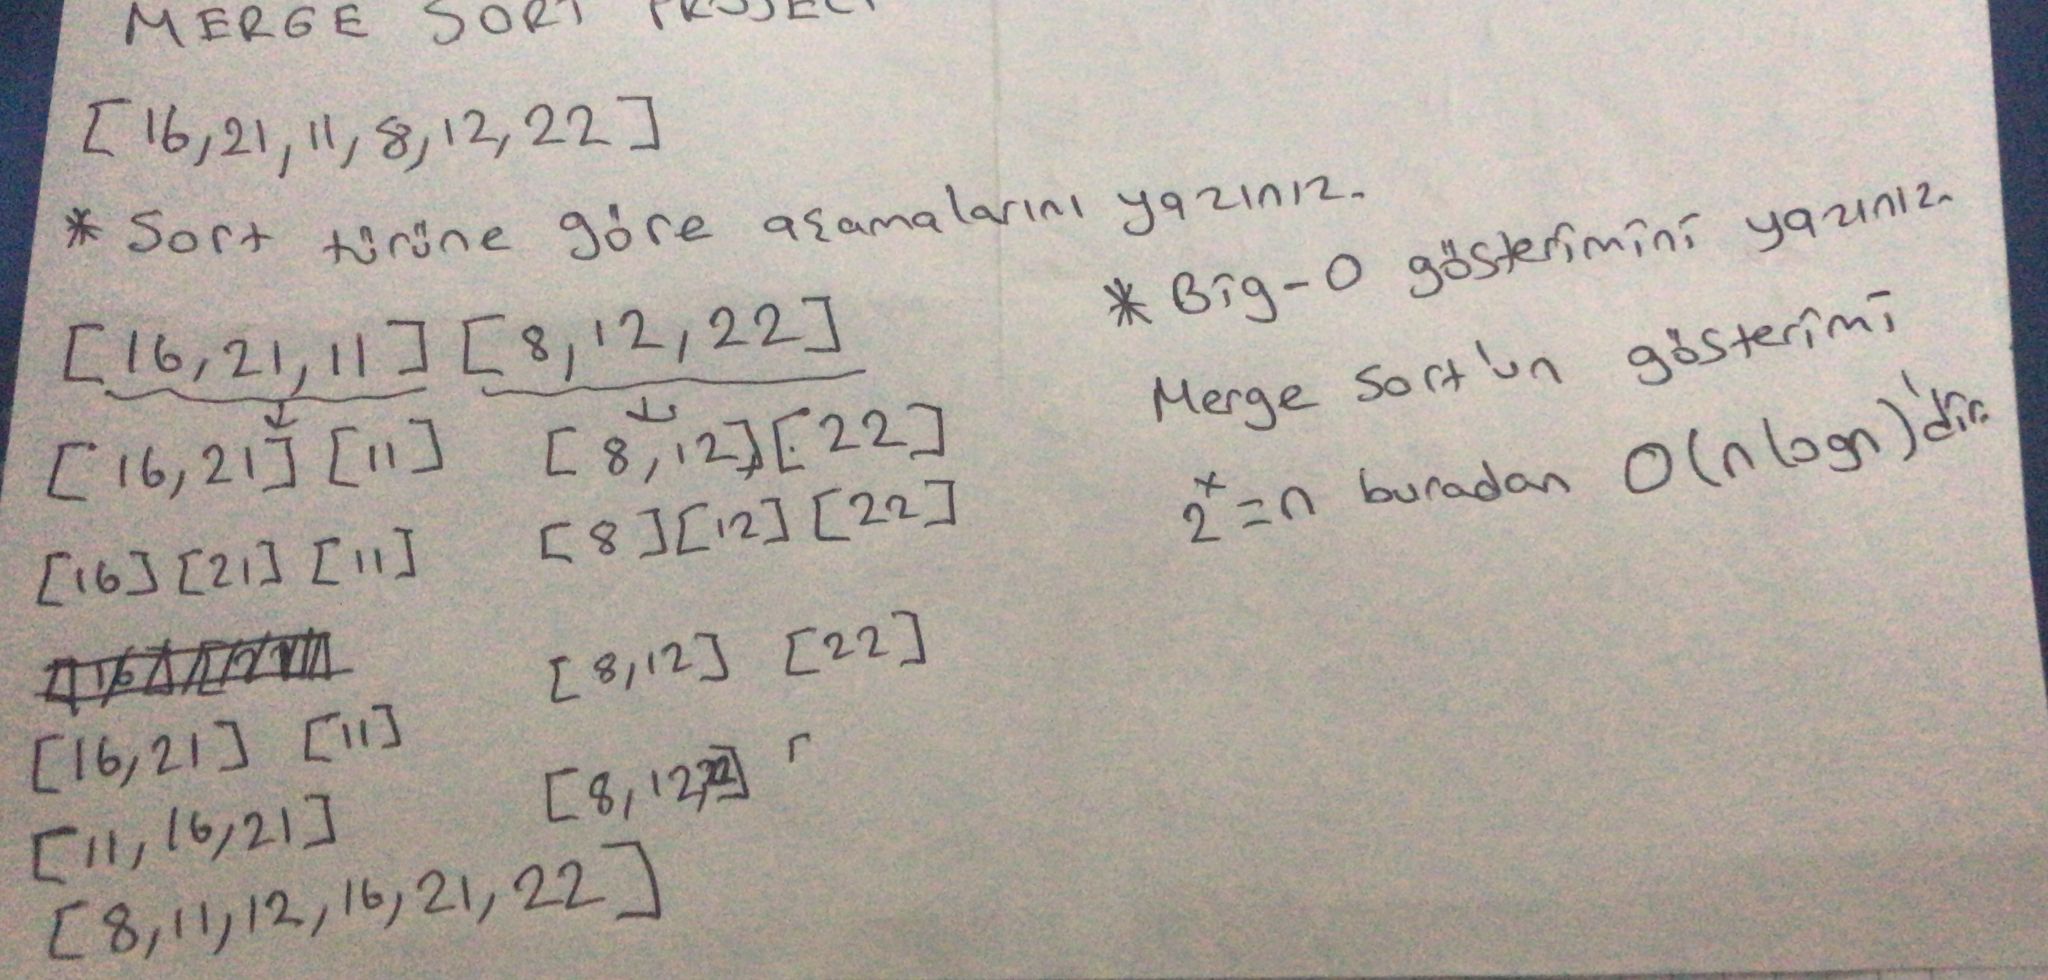 MERGE SORT PROJECT
[16,21,11,8,12,22]
* Sort türüne göre aşamalarını yazınız.
[16,21,11] [8,12,22]
[16,21] [11] [8,12] [22]
[16] [21] [11] [8] [12] [22]
[8,12] [22]
[16,21] [11]
[8,12,22]
[11,16,21]
[8,11,12,16,21,22]
* Big-O gösterimini yazınız.
Merge Sort'un gösterimi
2^x=n buradan O(n logn)'dir.